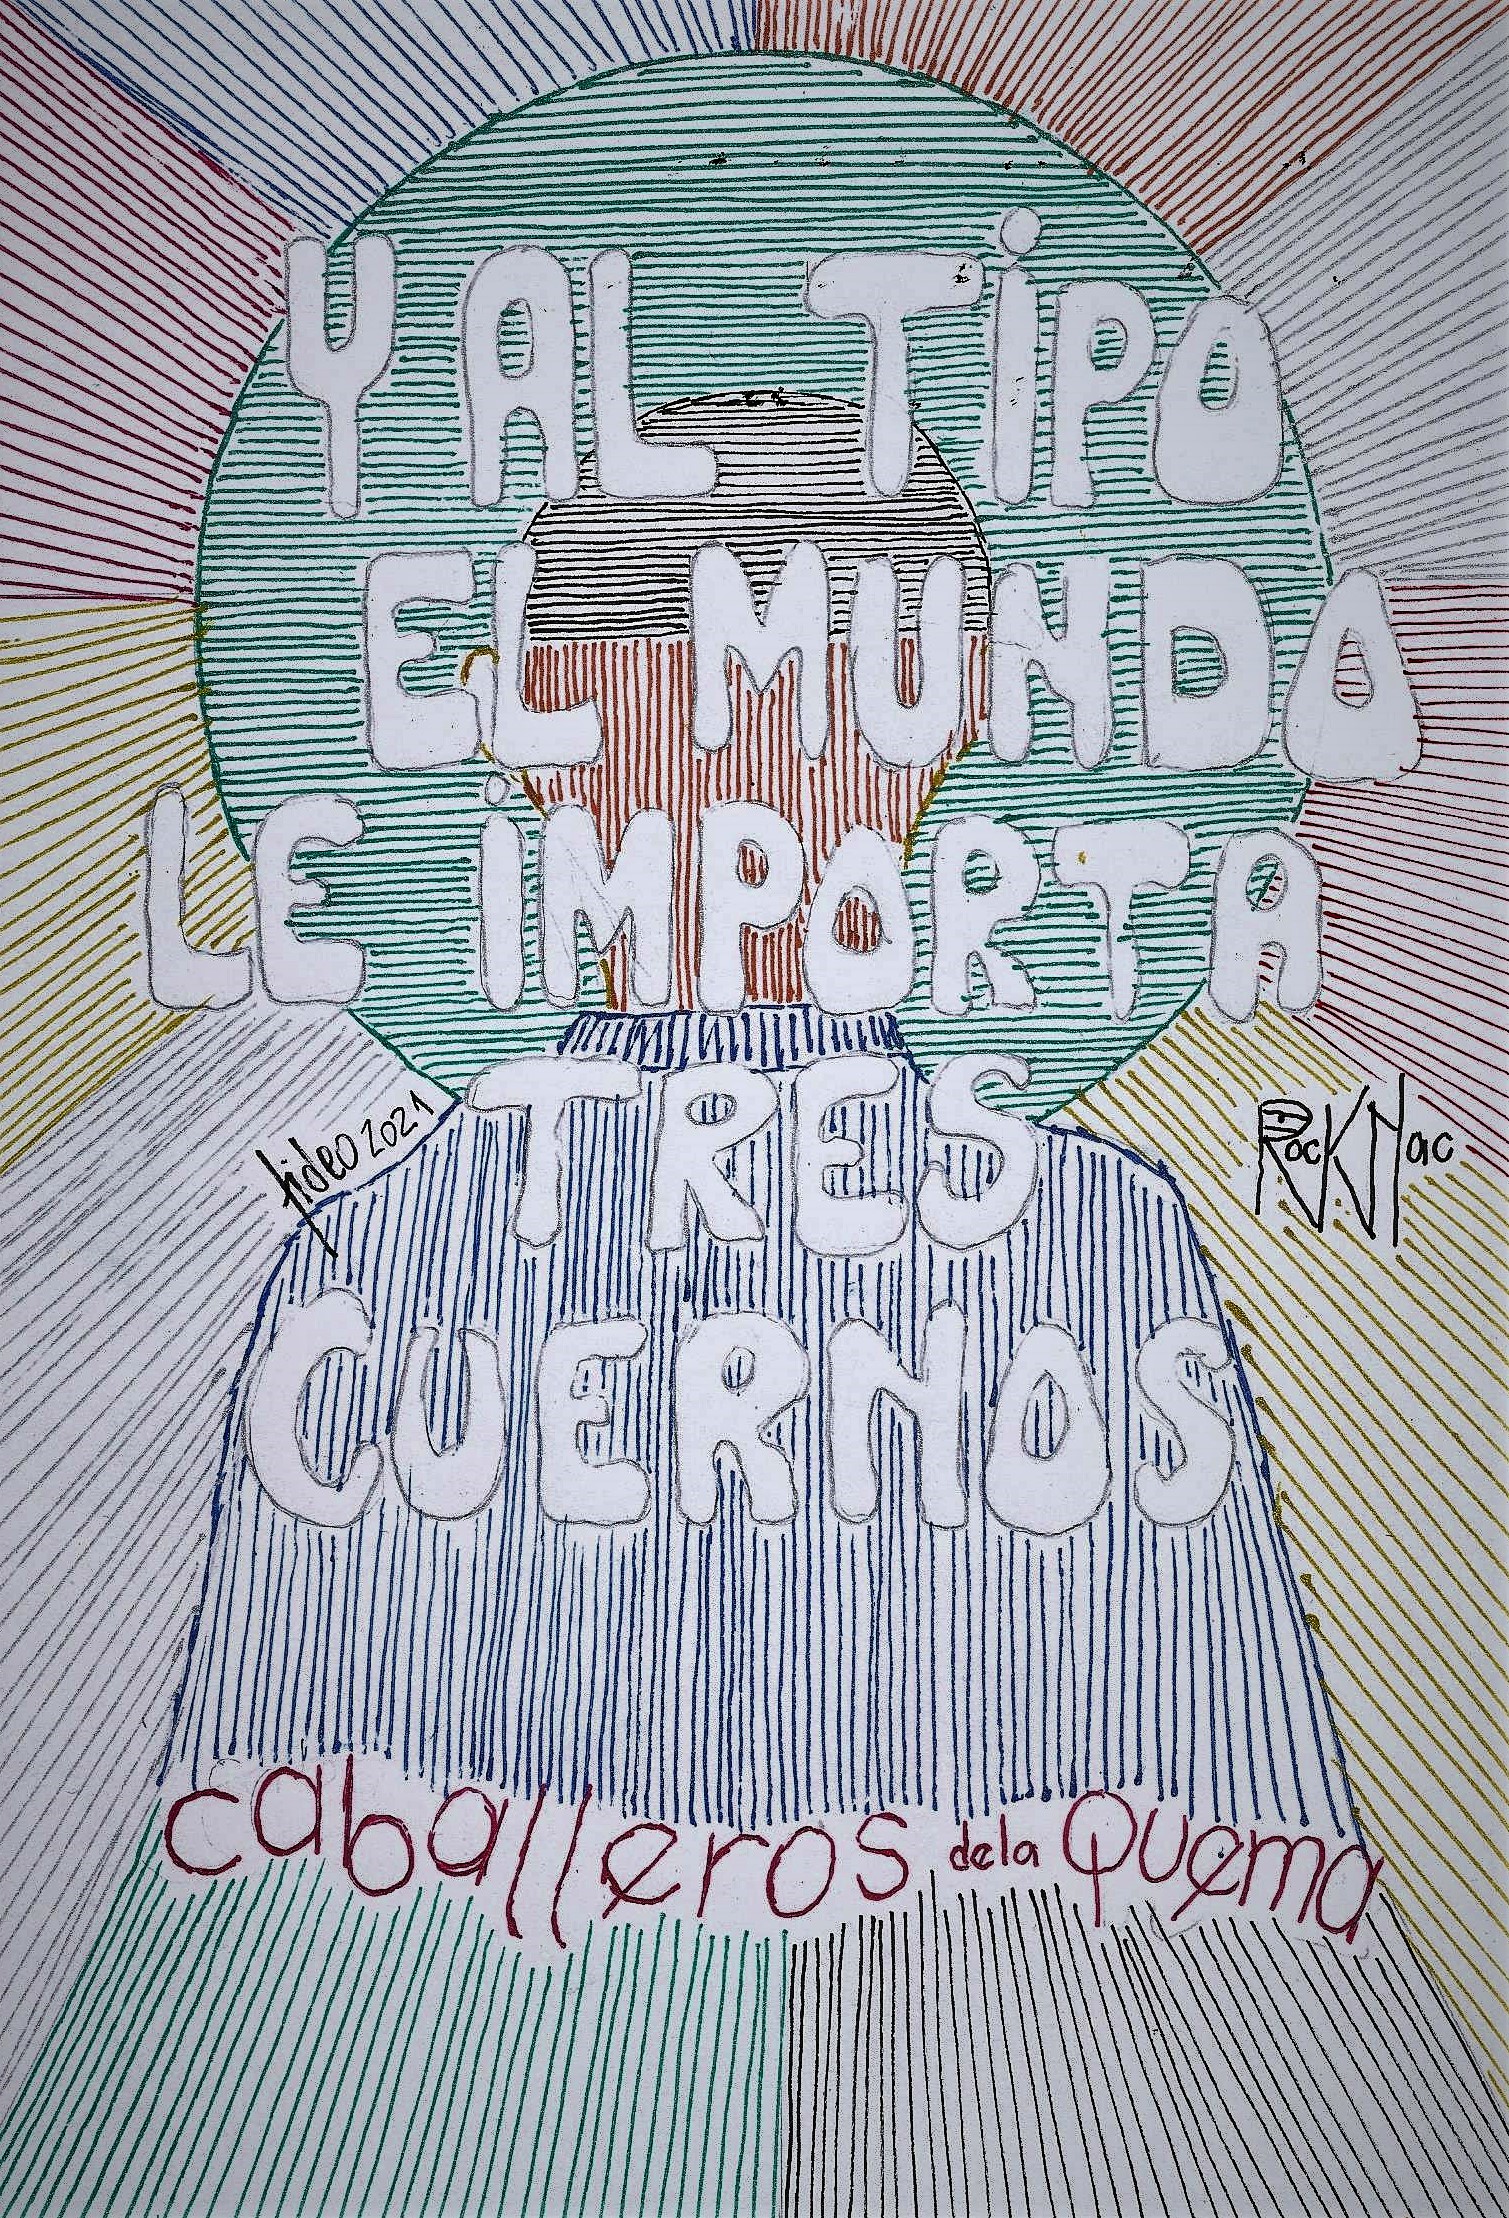 Y AL TIPO
EL MUNDO
LE IMPORTA
TRES
fideo 2021
Rock Nac
CUERNOS
caballeros de la Quema